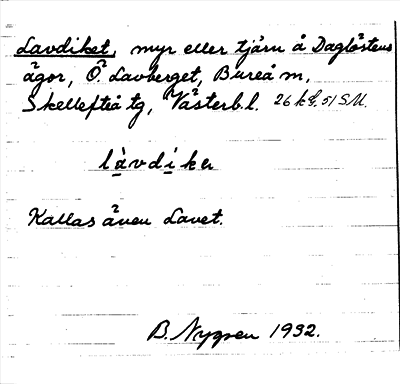 Lavdiket, myr eller tjärn å Daglöstens
ägor, Ö. Lavberget, Bureå sn,
Skellefteå tg, Västerb.l. 26 kf. 51 SU.
làvdikə
Kallas även Lavet.
B. Nygren 1932.